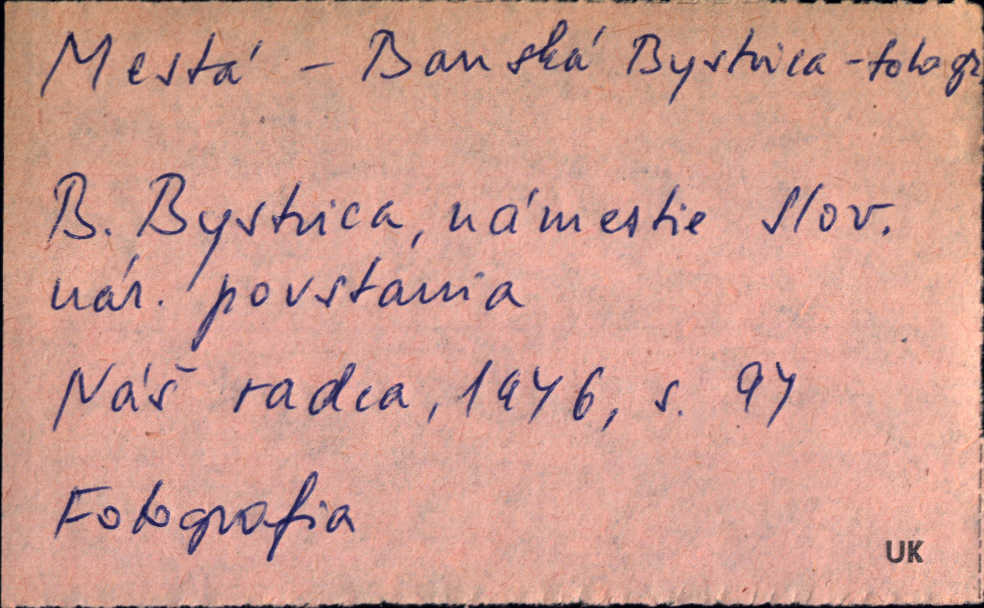 Mestá - Banská Bystrica - fotogr.
B. Bystrica, námestie Slov.
nár. povstania
Náš radca, 1946, s. 94
Fotografia
UK